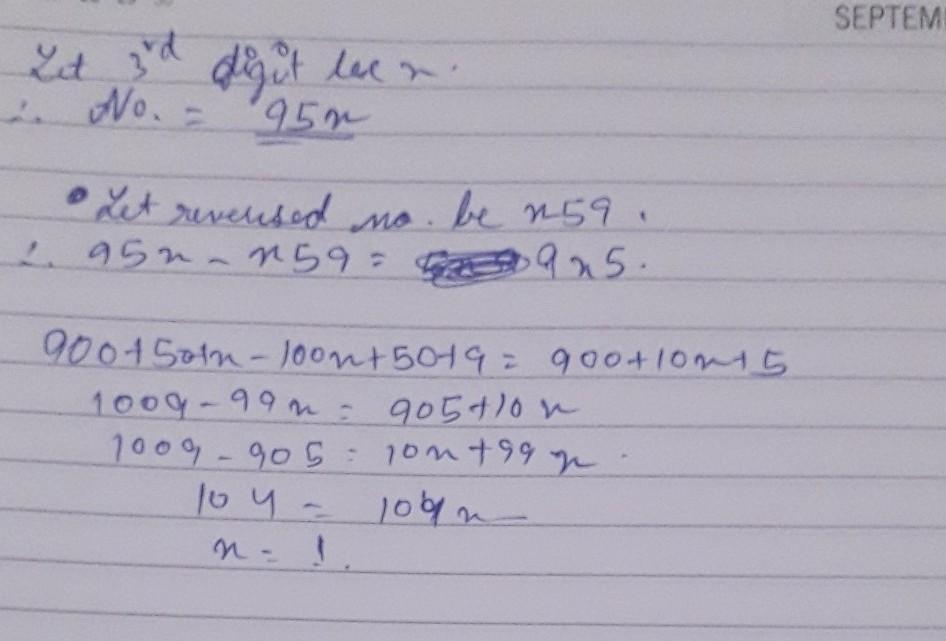 SEPTEM
Let 3rd digit be x.
∴ No. = 95x
• Let reversed no. be x59.
∴ 95x - x59 = 9x5.
900+50+x-100x+50+9 = 900+10x+5
1009-99x = 905+10x
1009-905 = 10x+99x.
104 = 109x
x = 1.